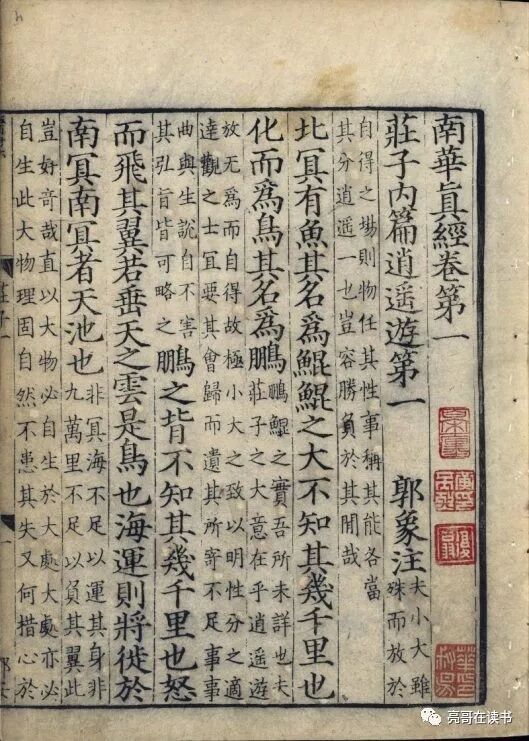 南華眞經卷第一
莊子内篇逍遥遊第一 郭象注
夫小大雖
殊而放於
自得之場則物任其性事稱其能各當
其分逍遥一也豈容勝負於其閒哉
北冥有魚其名爲鯤鯤之大不知其幾千里也
化而爲鳥其名爲鵬
鵬鯤之實吾所未詳也夫
莊子之大意在乎逍遥遊
放无爲而自得故極小大之致以明性分之適
達觀之士冝要其會歸而遺其所寄不足事事
曲與生說自不害
其弘旨皆可略之
鵬之背不知其幾千里也怒
而飛其翼若垂天之雲是鳥也海運則將徙於
南冥南冥者天池也
非冥海不足以運其身非
九萬里不足以負其翼此
豈好竒哉直以大物必自生於大處大處亦必
自生此大物理固自然不患其失又何措心於
莊子一
亮哥在读书